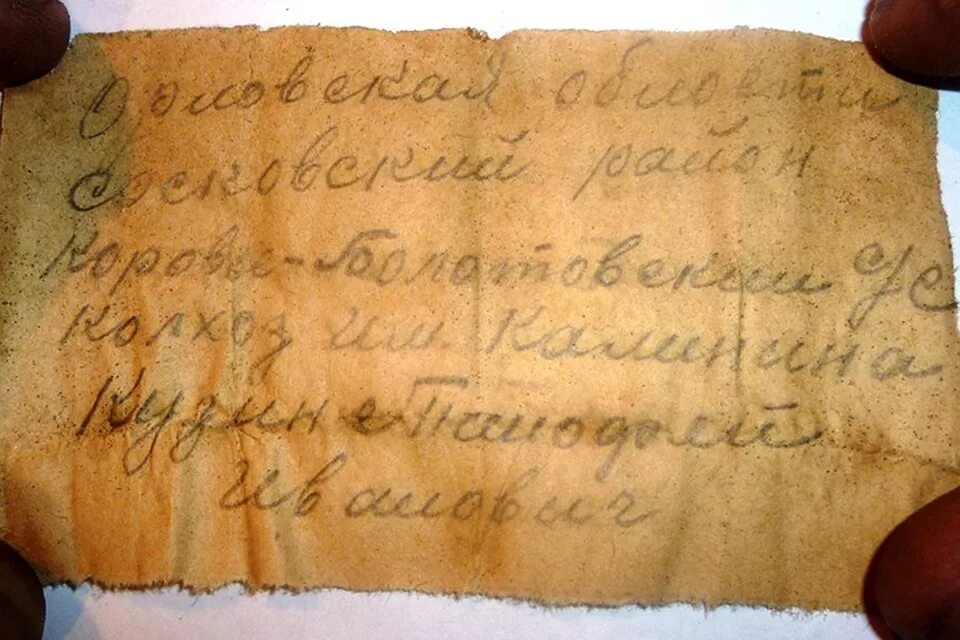 Орловская область
Сосковский район
Корови-Болотовский с/с
Колхоз им. Калинина
Кузин
Иванович